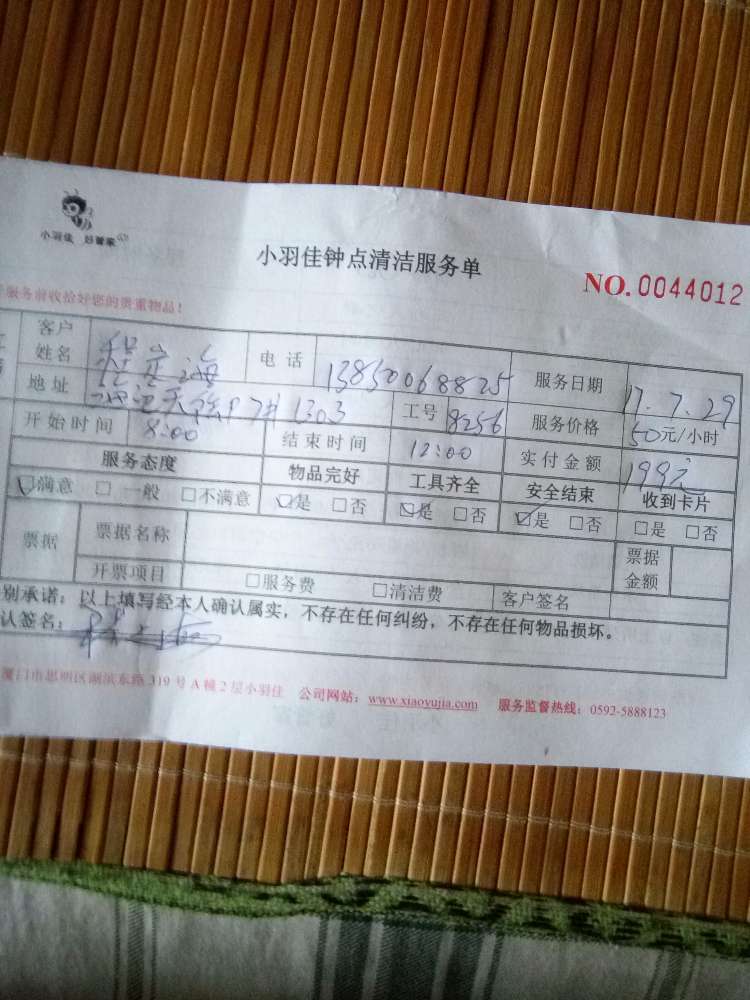 小羽佳 好管家
小羽佳钟点清洁服务单
NO. 0044012
服务前收拾好您的贵重物品!
客户姓名 程 海 电话 13850068825 服务日期 17.7.29
地址 7# 1303 工号 8256 服务价格 50元/小时
开始时间 8:00 结束时间 12:00 实付金额 199
服务态度 物品完好 工具齐全 安全结束 收到卡片
☑满意 □一般 □不满意 ☑是 □否 ☑是 □否 ☑是 □否 □是 □否
票据 票据名称 票据金额
开票项目 □服务费 □清洁费 客户签名
别承诺:以上填写经本人确认属实,不存在任何纠纷,不存在任何物品损坏。
认签名:
厦门市思明区湖滨东路319号A幢2层小羽佳 公司网站:www.xiaoyujia.com 服务监督热线:0592-5888123